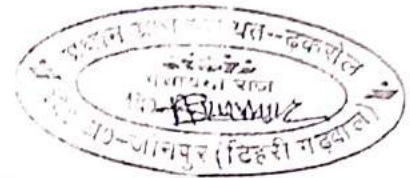 प्रधान ग्राम पंचायत--ढकरोल
पंचायती राज
वि०
जौनपुर (टिहरी गढ़वाल)